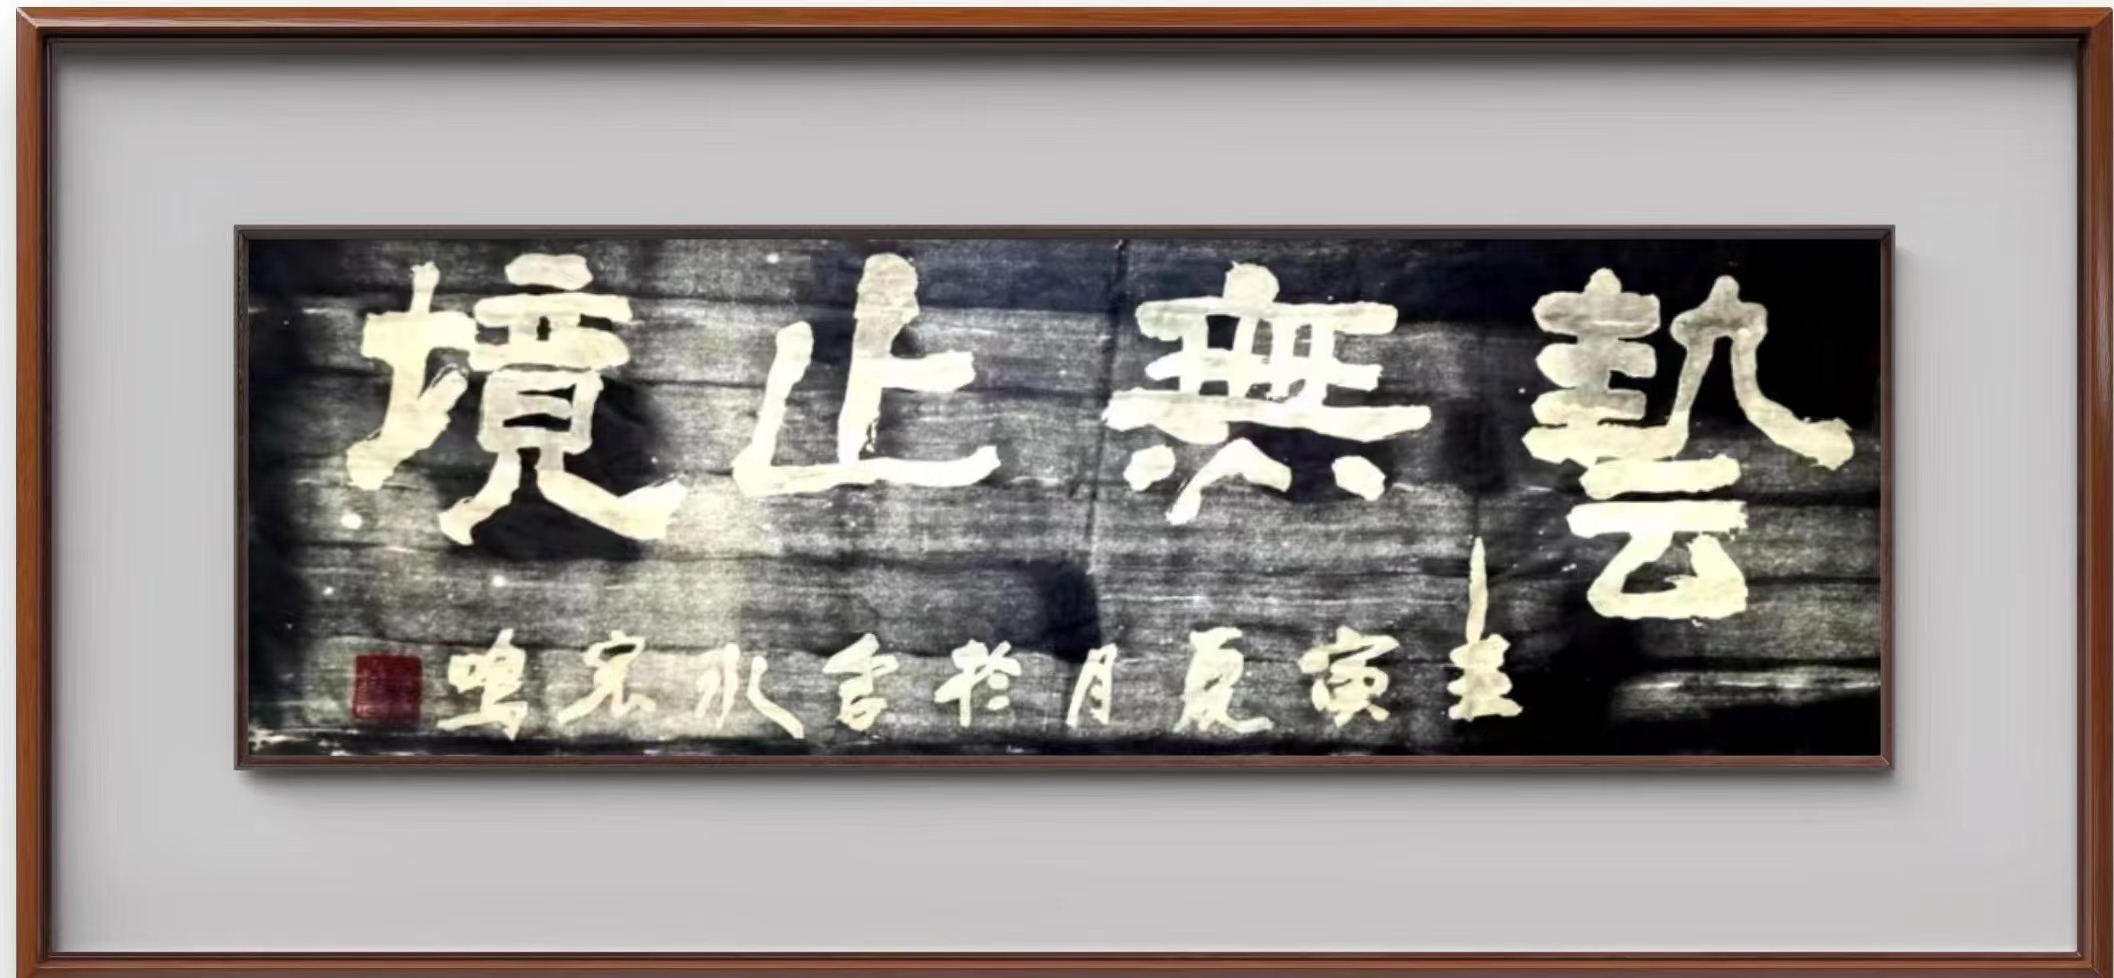 藝無止境
壬寅夏月於水宏鳴